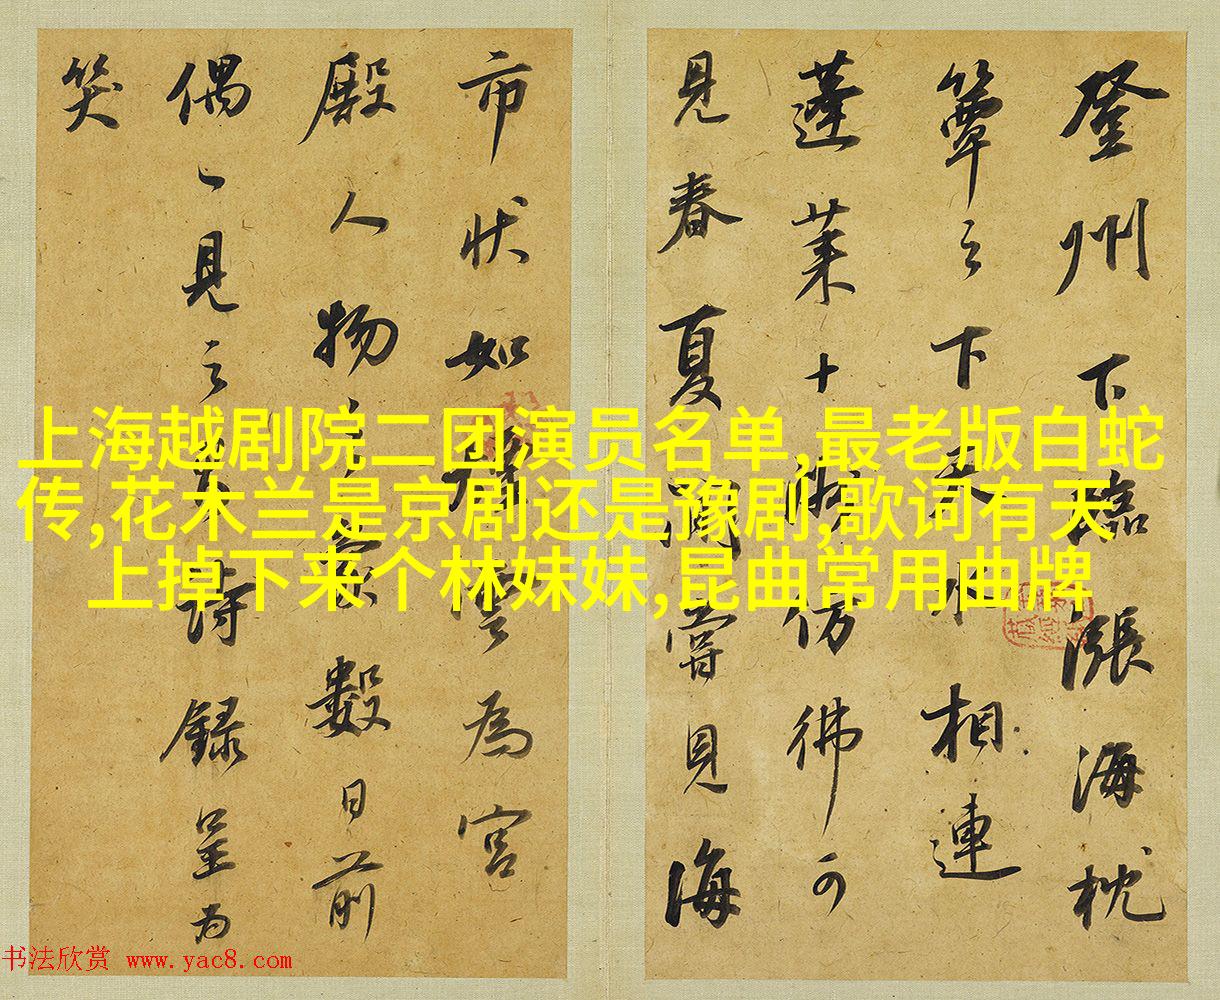 登州下臨漲海枕
簟之下天水相連
蓬萊十洲仿彿可
見春夏間嘗見海
市狀如雲為宮
殿人物之數日前
偶一見之詩録呈為
笑
上海越剧院二团演员名单,最老版白蛇
传,花木兰是京剧还是豫剧,歌词有天
上掉下来个林妹妹,昆曲常用曲牌
书法欣赏 www.yac8.com